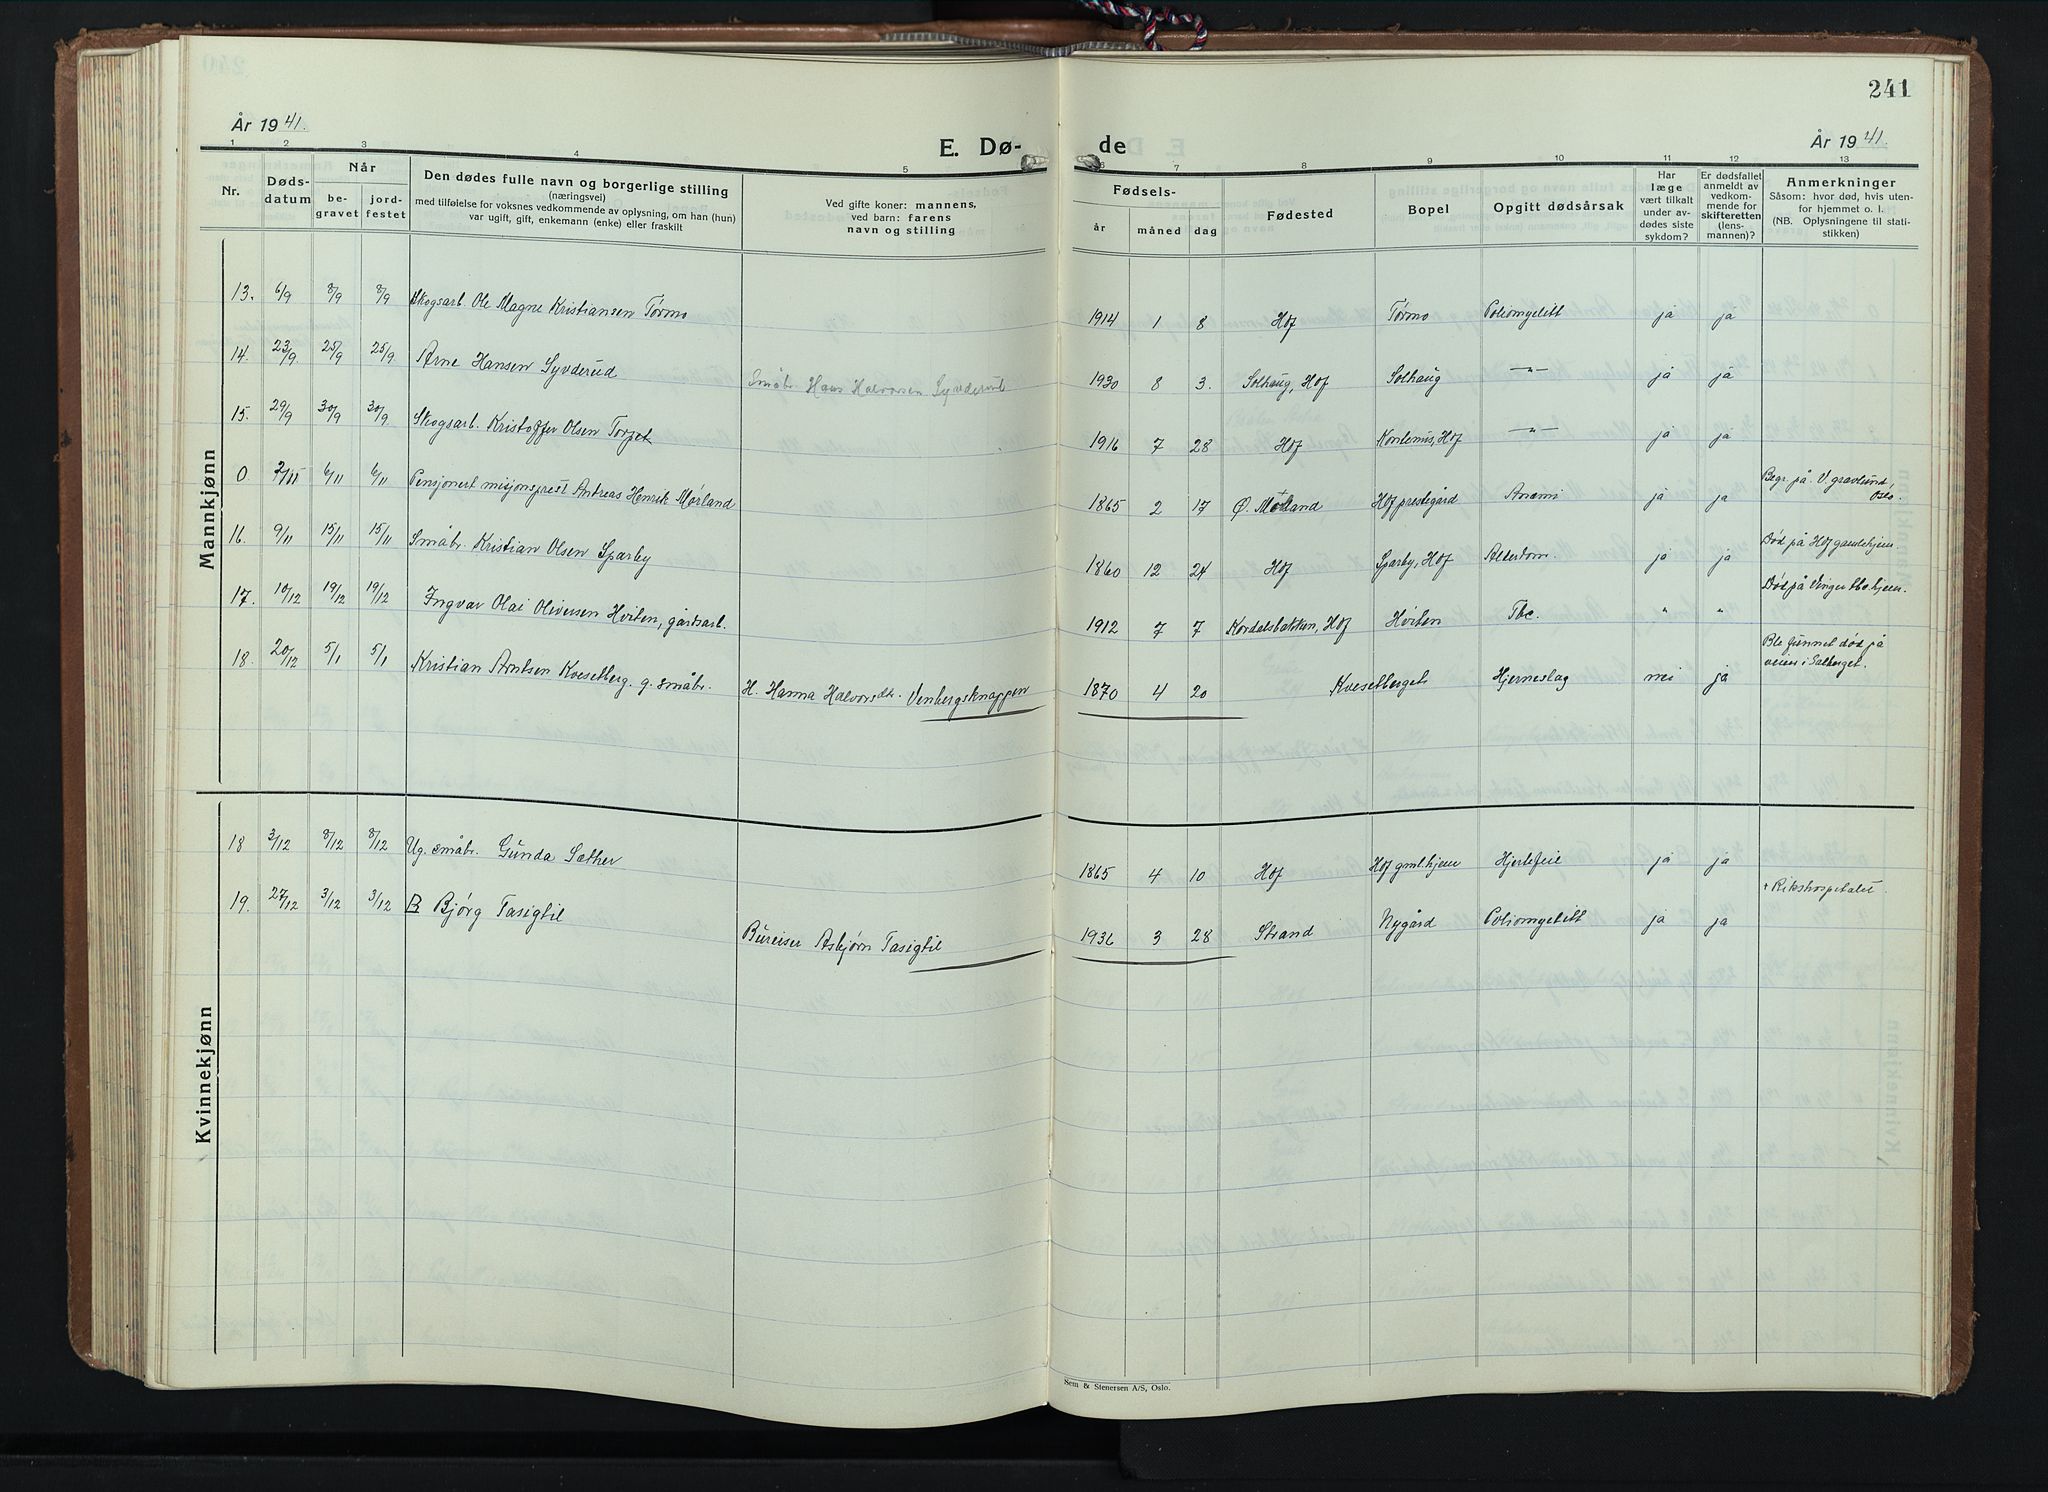 241
År 1941.
År 1941.
E. Dø-
de
1 2 3 4 5 6 7 8 9 10 11 12 13
Nr.
Døds-
datum
Når
be-
gravet
jord-
festet
Den dødes fulle navn og borgerlige stilling
(næringsvei)
med tilføielse for voksnes vedkommende av oplysning, om han (hun)
var ugift, gift, enkemann (enke) eller fraskilt
Ved gifte koner: mannens,
ved barn: farens
navn og stilling
Fødsels-
år
måned
dag
Fødested
Bopel
Opgitt dødsårsak
Har
læge
vært tilkalt
under av-
dødes siste
sykdom?
Er dødsfallet
anmeldt av
vedkom-
mende for
skifteretten
(lens-
mannen)?
Anmerkninger
Såsom: hvor død, hvis uten-
for hjemmet o. l.
(NB. Oplysningene til stati-
stikken)
Mannkjønn
13. 6/9 8/9 8/9 Skogsarb. Ole Magne Kristiansen Tørmo 1914 1 8 Hof Tørmo Poliomyelitt ja ja
14. 23/9 25/9 25/9 Arne Hansen Syverud Småbr. Hans Halvorsen Syverud 1930 8 3. Solhaug, Hof Solhaug —"— ja ja
15. 29/9 30/9 30/9 Skogsarb. Kristoffer Olsen Torjet 1916 7 28 Hof Hof —"— ja ja
0 2/11 6/11 6/11 Pensjonert misjonsprest Andreas Henrik Mørland 1865 2 17 Ø. Mørland Hof prestegård Anemi ja ja Begr. på V. gravlund, Oslo.
16. 9/11 15/11 15/11 Småbr. Kristian Olsen Sparby 1860 12 24 Hof Sparby, Hof Alderdom. ja ja Død på Hof gamlehjem.
17. 10/12 19/12 19/12 Ingvar Olai Oliversen Hviten, gårdsarb. 1912 7 7 Kordalsbakken, Hof Hviten Tbc. " " Død på Vinger tbc.hjem.
18. 20/12 5/1 5/1 Kristian Arntsen Kvesetberg. g. småbr. H. Hanna Halvorsdtr. Venbergsknappen 1870 4 20 Kvesetberget Hjerneslag nei ja Ble funnet død på veien i Galberget.
Kvinnekjønn
18 3/12 8/12 8/12 Ug. småbr. Gunda Sæther 1865 4 10 Hof Hof gml.hjem Hjertefeil ja ja
19. 27/12 3/12 3/12 B Bjørg Tasigtil Bureiser Asbjørn Tasigtil 1936 3 28 Strand Nygård Poliomyelitt ja ja + Rikshospitalet.
Sem & Stenersen A/S, Oslo.